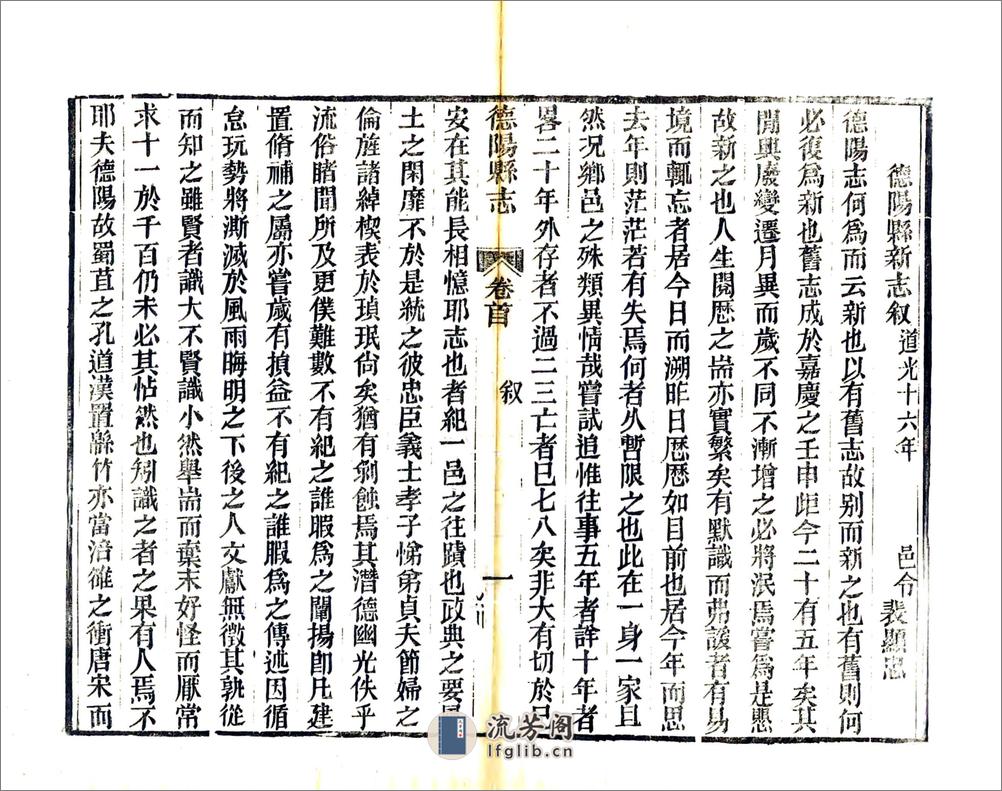 德陽縣新志叙 道光十六年 邑令 裴顯忠
德陽志何爲而云新也以有舊志故别而新之也有舊則何
必復爲新也舊志成於嘉慶之壬申距今二十有五年矣其
閒興廢變遷月異而歲不同不漸增之必將泯焉嘗爲是懸
故新之也人生閱歴之耑亦實繁矣有默識而弗諼者有易
境而輒忘者居今日而溯昨日歴歴如目前也居今年而思
去年則茫茫若有失焉何者久暫限之也此在一身一家且
然況鄉邑之殊類異情哉嘗試追惟往事五年者詳十年者
畧二十年外存者不過二三亡者巳七八矣非大有切於
德陽縣志 卷首 叙 一
安在其能長相憶耶志也者紀一邑之往蹟也政典之要
土之閑靡不於是統之彼忠臣義士孝子悌弟貞夫節婦之
倫旌諸綽楔表於瑣珉尙矣猶有剜蝕焉其潛德幽光佚乎
流俗睹聞所及更僕難數不有紀之誰暇爲之闡揚卽凡建
置脩補之屬亦嘗歲有損益不有紀之誰暇爲之傳述因循
怠玩勢將澌滅於風雨晦明之下後之人文獻無徵其孰從
而知之雖賢者識大不賢識小然舉耑而棄末好怪而厭常
求十一於千百仍未必其帖然也矧識之者之果有人焉不
耶夫德陽故蜀苴之孔道漢置緜竹亦當涪雒之衝唐宋而
流芳阁
lfglib.cn